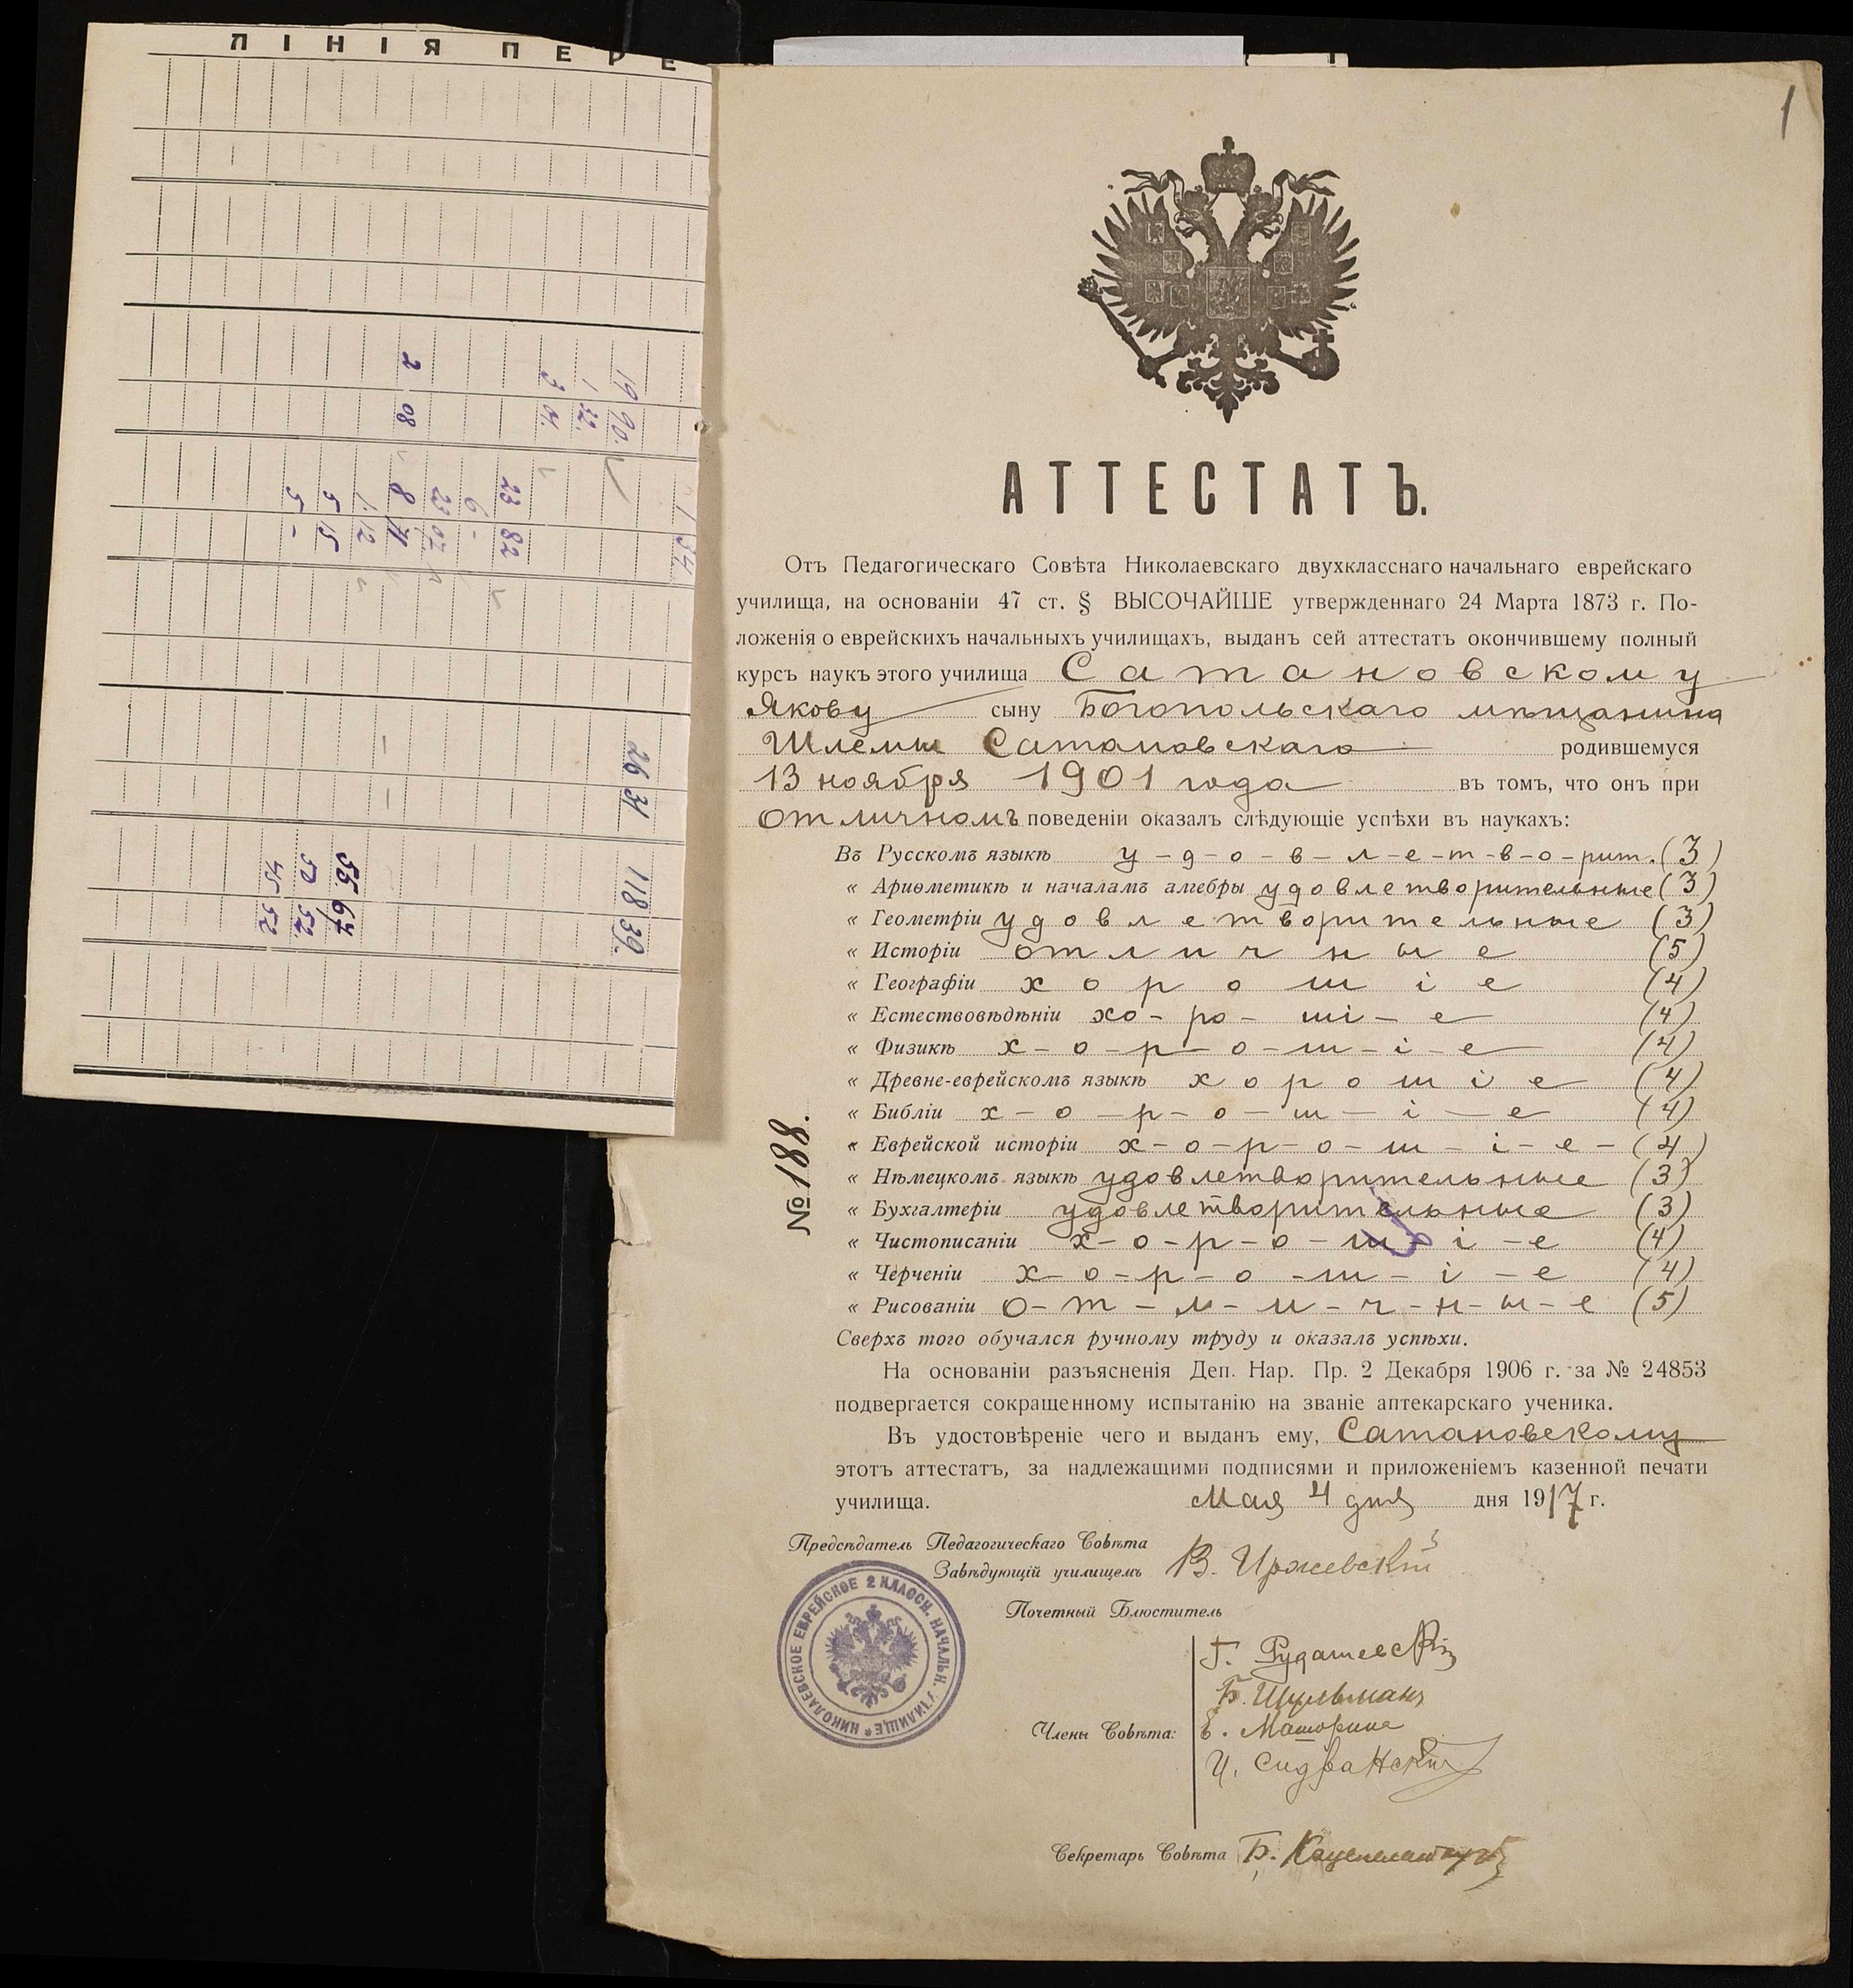 ЛІНІЯ ПЕРЕ
19 90.
1 32.
3 01.
2 08
1 34
23 82
6 -
23 02
8 71
1. 12
5 15
5 -
26 31
118 39.
55. 67
50 52.
45 52
1
АТТЕСТАТЪ.
Отъ Педагогическаго Совѣта Николаевскаго двухкласснаго начальнаго еврейскаго
училища, на основаніи 47 ст. § ВЫСОЧАЙШЕ утвержденнаго 24 Марта 1873 г. По-
ложенія о еврейскихъ начальныхъ училищахъ, выданъ сей аттестатъ окончившему полный
курсъ наукъ этого училища Сатановскому
Якову сыну Богопольскаго мѣщанина
Шлемы Сатановскаго родившемуся
13 ноября 1901 года въ томъ, что онъ при
отличномъ поведеніи оказалъ слѣдующіе успѣхи въ наукахъ:
Въ Русскомъ языкѣ у-д-о-в-л-е-т-в-о-рит. (3)
« Ариѳметикѣ и началамъ алгебры удовлетворительные (3)
« Геометріи удовлетворительные (3)
« Исторіи отличные (5)
« Географіи хорошіе (4)
« Естествовѣдѣніи хо-ро-ші-е (4)
« Физикѣ х-о-р-о-ш-і-е (4)
« Древне-еврейскомъ языкѣ хорошіе (4)
« Библіи х-о-р-о-ш-і-е (4)
« Еврейской исторіи х-о-р-о-ш-і-е- (4)
« Нѣмецкомъ языкѣ удовлетворительные (3)
« Бухгалтеріи удовлетворительные (3)
« Чистописаніи х-о-р-о-ш-і-е (4)
« Черченіи х-о-р-о-ш-і-е (4)
« Рисованіи о-т-л-и-ч-н-ы-е (5)
Сверхъ того обучался ручному труду и оказалъ успѣхи.
№ 188.
На основаніи разъясненія Деп. Нар. Пр. 2 Декабря 1906 г. за № 24853
подвергается сокращенному испытанію на званіе аптекарскаго ученика.
Въ удостовѣреніе чего и выданъ ему, Сатановскому
этотъ аттестатъ, за надлежащими подписями и приложеніемъ казенной печати
училища. Мая 4 дня дня 1917 г.
Предсѣдатель Педагогическаго Совѣта
Завѣдующій училищемъ В. Иржевскій
Почетный Блюститель
НИКОЛАЕВСКОЕ ЕВРЕЙСКОЕ 2 КЛАССН. НАЧАЛЬН. УЧИЛИЩЕ *
Г. Рудашевскій
Б. Шульманъ
Члены Совѣта: Е.
Секретарь Совѣта Б.